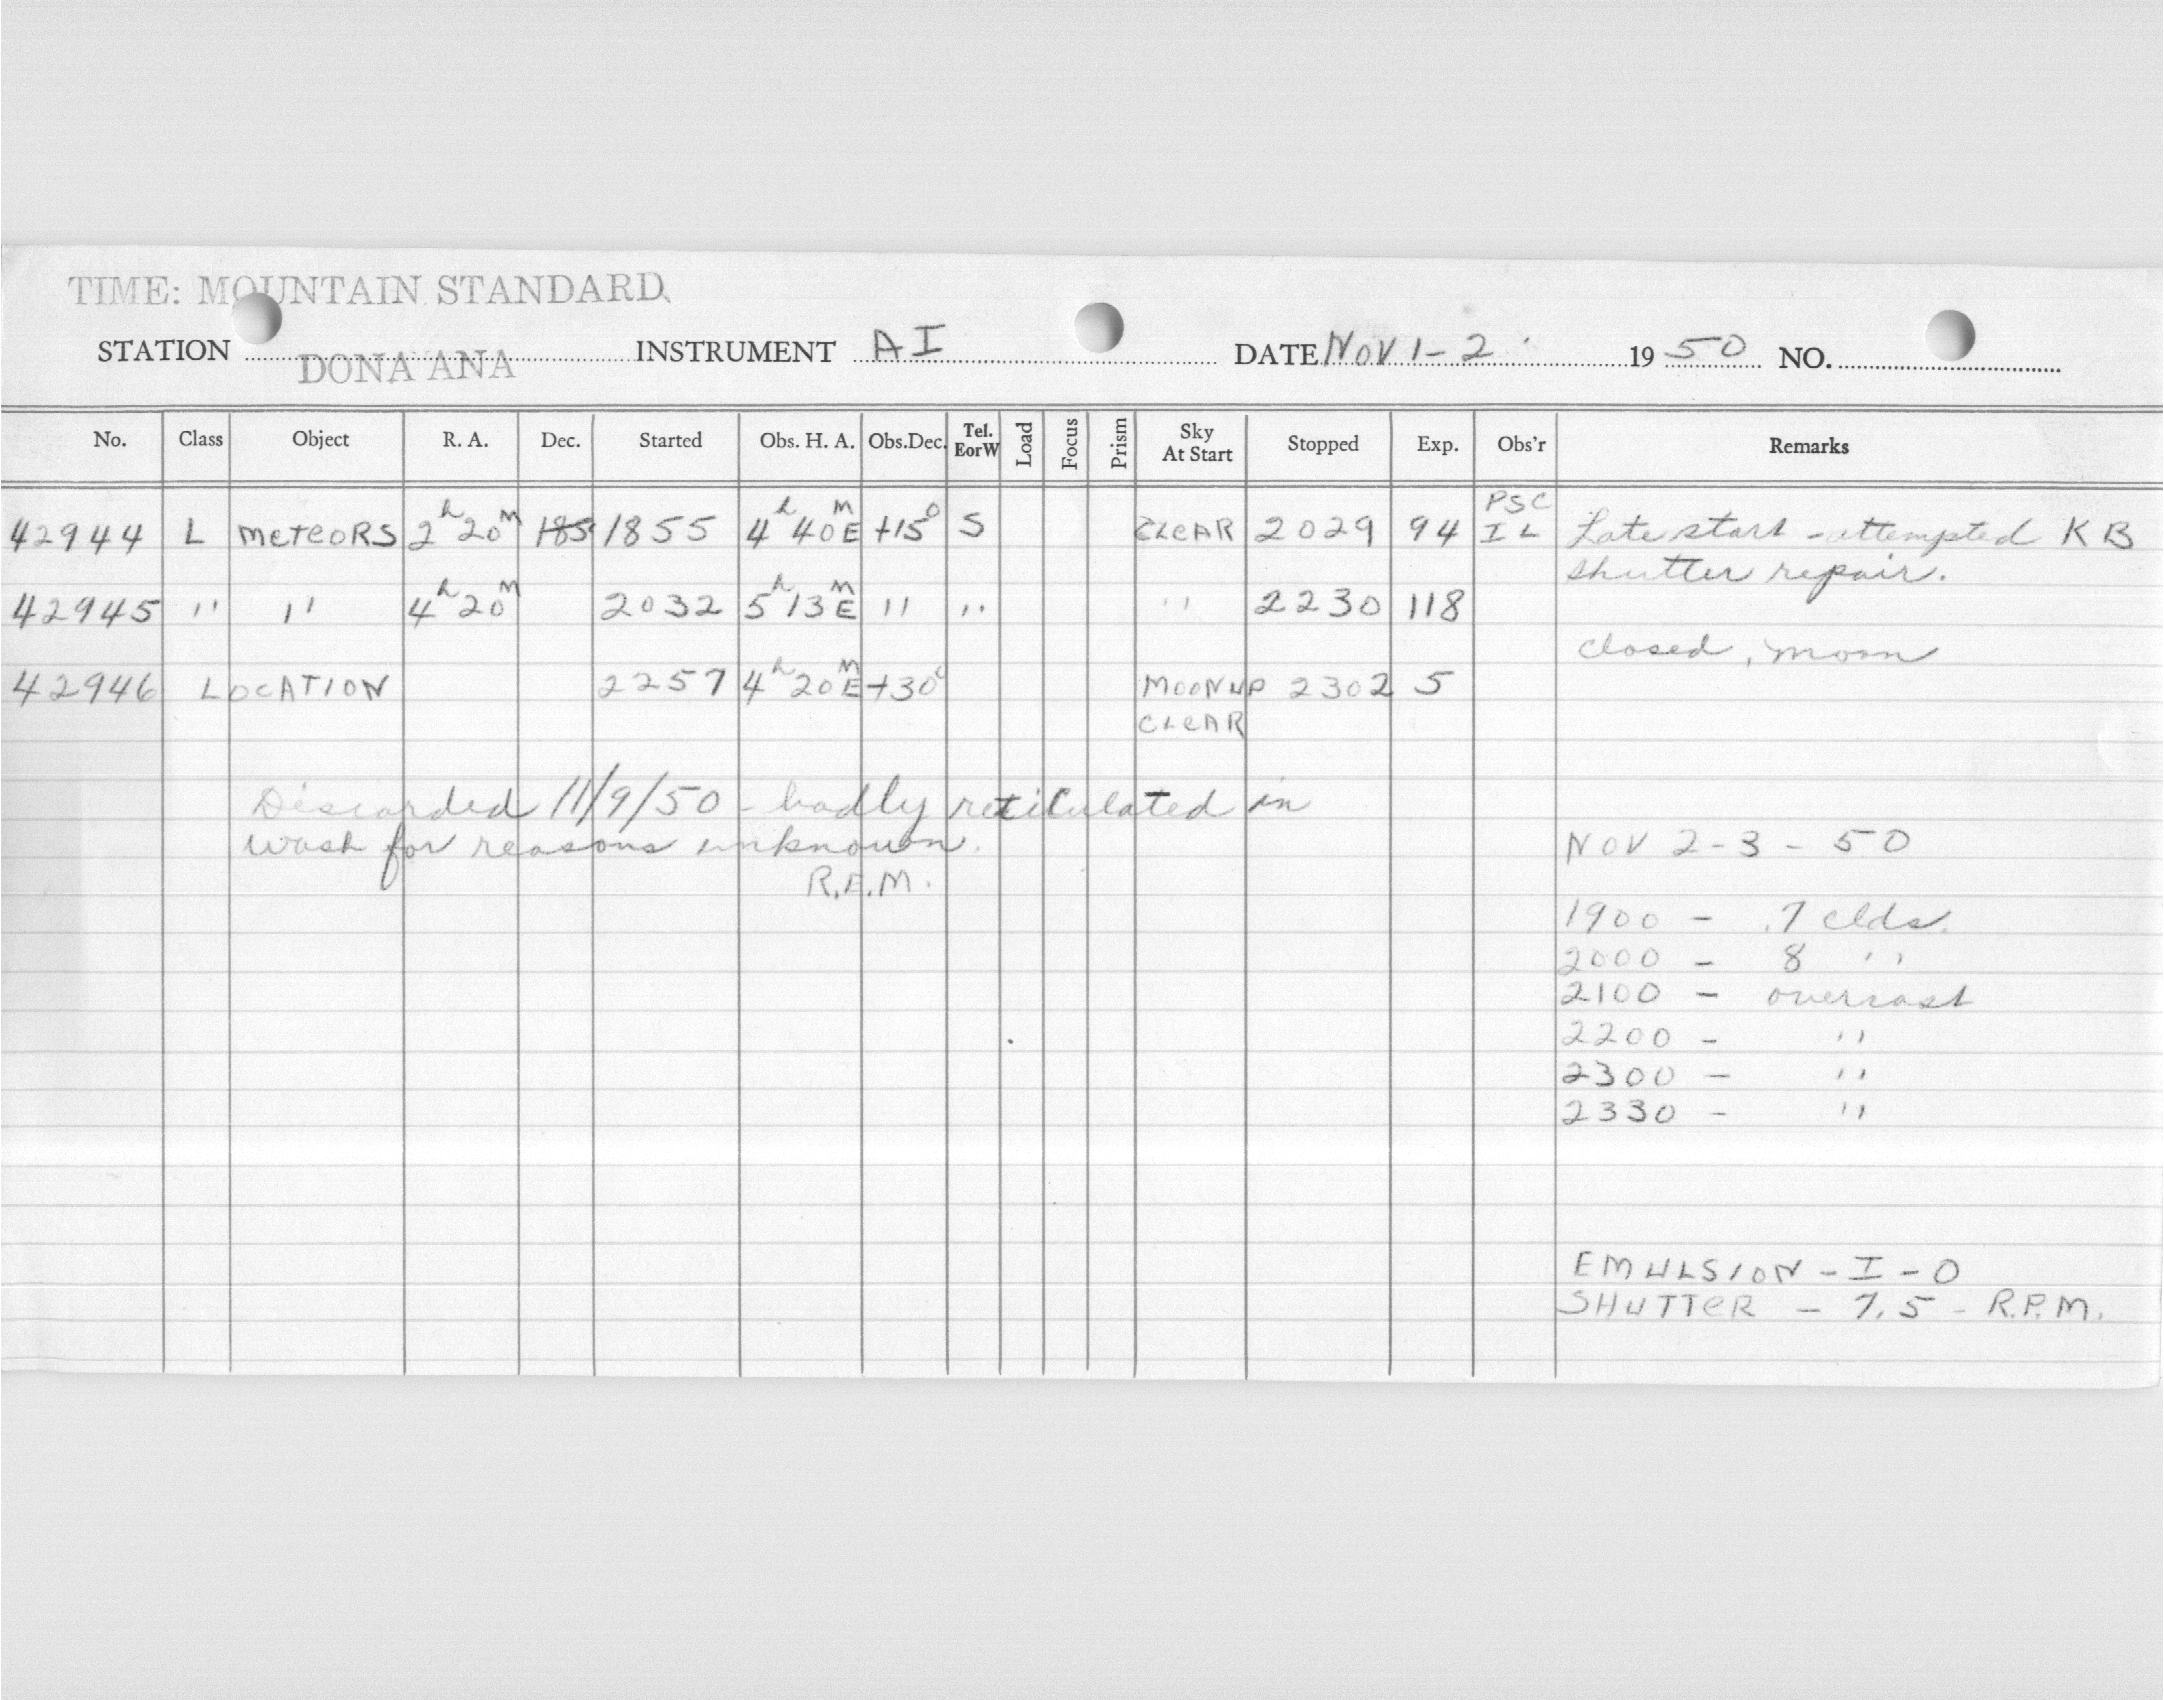 TIME: MOUNTAIN STANDARD
STATION DONA ANA INSTRUMENT AI DATE NOV 1-2 1950 NO.
No. Class Object R. A. Dec. Started Obs. H. A. Obs.Dec. Tel. EorW Load Focus Prism Sky At Start Stopped Exp. Obs'r Remarks
42944 L METEORS 2h 20m 185 1855 4h 40m E +15° S CLEAR 2029 94 PSC IL Late start - attempted KB
shutter repair.
42945 " " 4h 20m 2032 5h 13m E " " " 2230 118
closed, moon
42946 LOCATION 2257 4h 20m E +30° MOON UP 2302 5
CLEAR
Discarded 11/9/50 - badly reticulated in
wash for reasons unknown.
R.E.M.
NOV 2-3-50
1900 - .7 clds.
2000 - 8 "
2100 - overcast
2200 - "
2300 - "
2330 - "
EMULSION - I - O
SHUTTER - 7.5 - R.P.M.